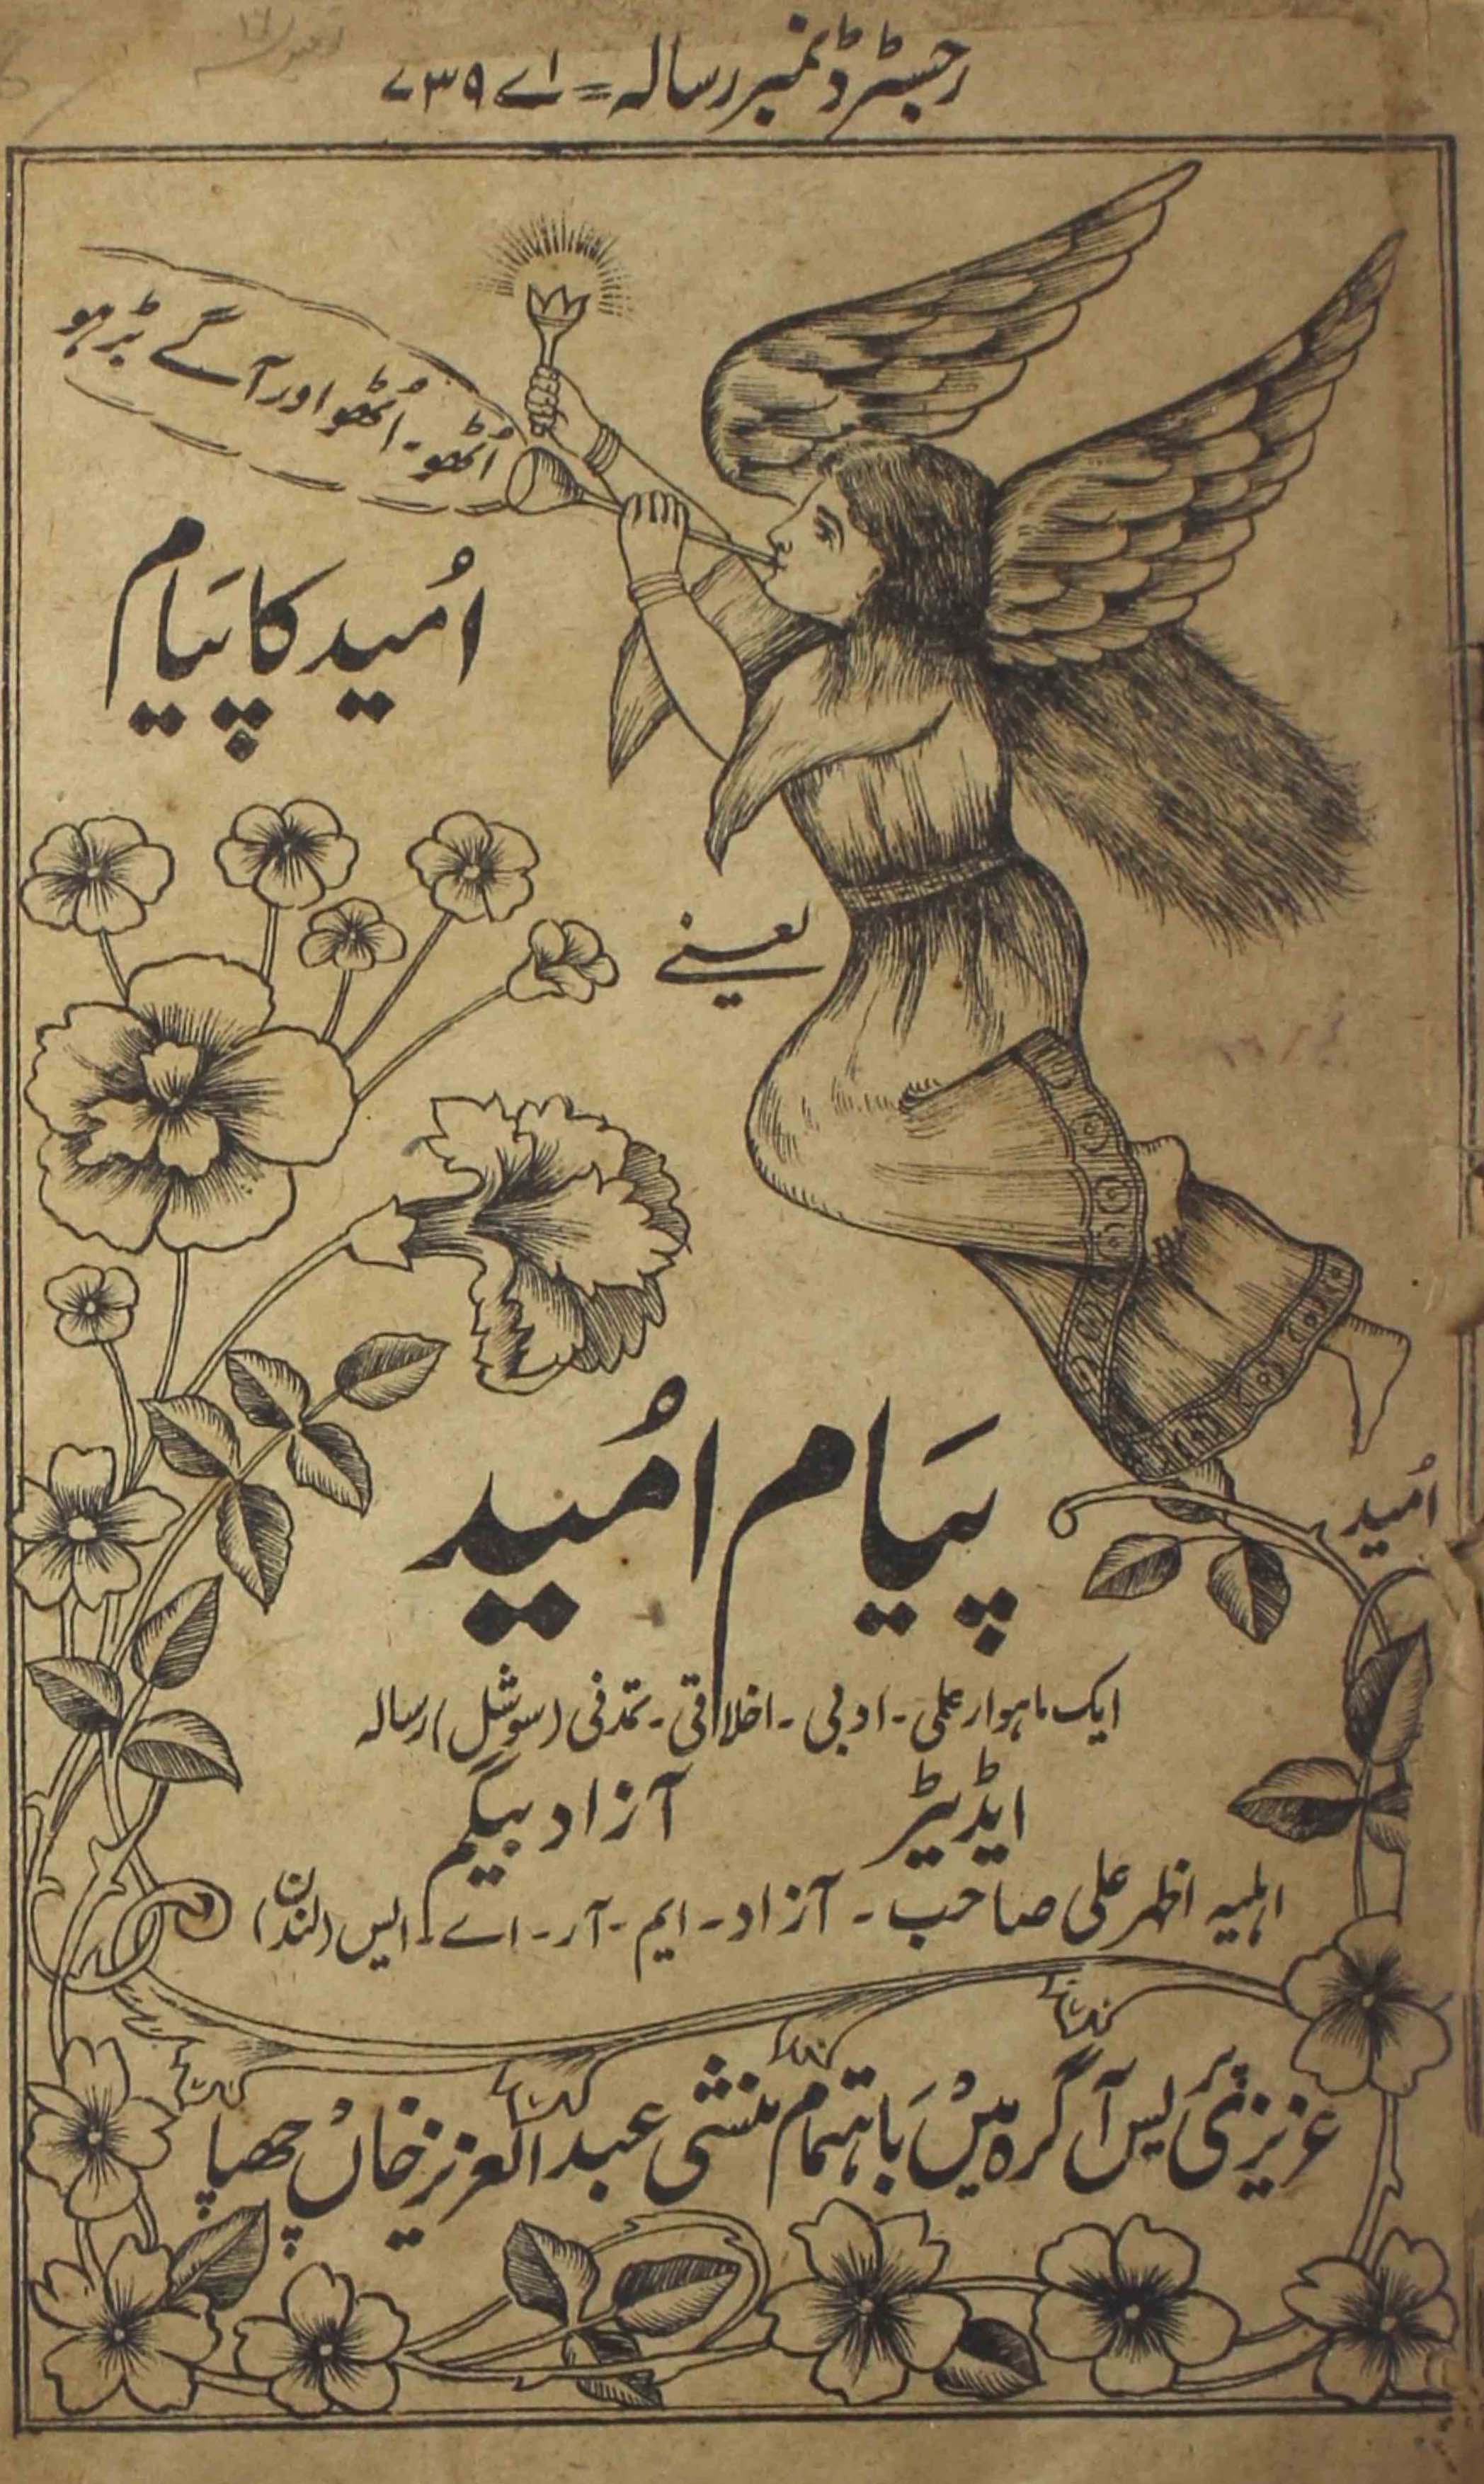 رجسٹرڈ نمبر رسالہ = اے ۷۳۹
اُٹھو - اُٹھو اور آگے بڑہو
اُمید کا پَیام
یعنے
پَیام اُمید
اُمید
ایک ماہوار علمی - ادبی - اخلاقی - تمدنی (سوشل) رسالہ
ایڈیٹر آزاد بیگم
اہلیہ اظہر علی صاحب - آزاد - ایم - آر - اے - ایس (لندن)
عزیزی پریس آگرہ میں بَاہتمام منشی عبدالعزیز خاں چھپا